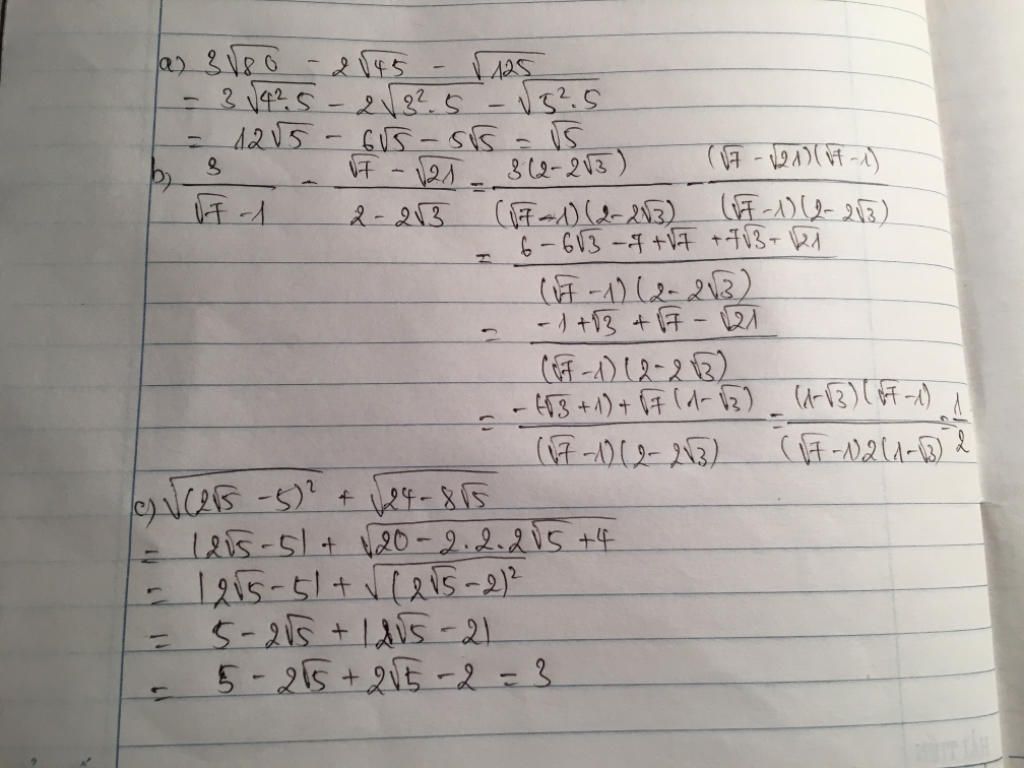 a) 3√80 - 2√45 - √125
= 3√4².5 - 2√3².5 - √5².5
= 12√5 - 6√5 - 5√5 = √5
b) 3/(√7 - 1) - (√7 - √21)/(2 - 2√3) = 3(2 - 2√3)/((√7 - 1)(2 - 2√3)) - (√7 - √21)(√7 - 1)/((√7 - 1)(2 - 2√3))
= (6 - 6√3 - 7 + √7 + 7√3 - √21)/((√7 - 1)(2 - 2√3))
= (-1 + √3 + √7 - √21)/((√7 - 1)(2 - 2√3))
= (-(-√3 + 1) + √7(1 - √3))/((√7 - 1)(2 - 2√3)) = (1 - √3)(√7 - 1)/((√7 - 1)2(1 - √3)) = 1/2
c) √(2√5 - 5)² + √24 - 8√5
= |2√5 - 5| + √20 - 2.2.2√5 + 4
= |2√5 - 5| + √(2√5 - 2)²
= 5 - 2√5 + |2√5 - 2|
= 5 - 2√5 + 2√5 - 2 = 3